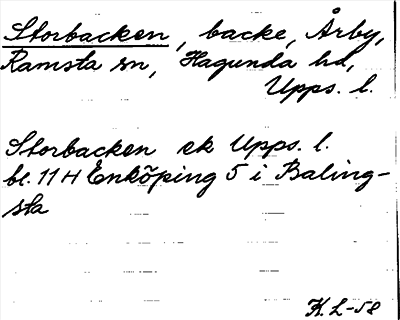 Storbacken, backe, Årby,
Ramsta sn, Hagunda hd,
Upps. l.
Storbacken ek Upps. l.
bl. 11 H Enköping 5 i Baling-
sta
K.L-58